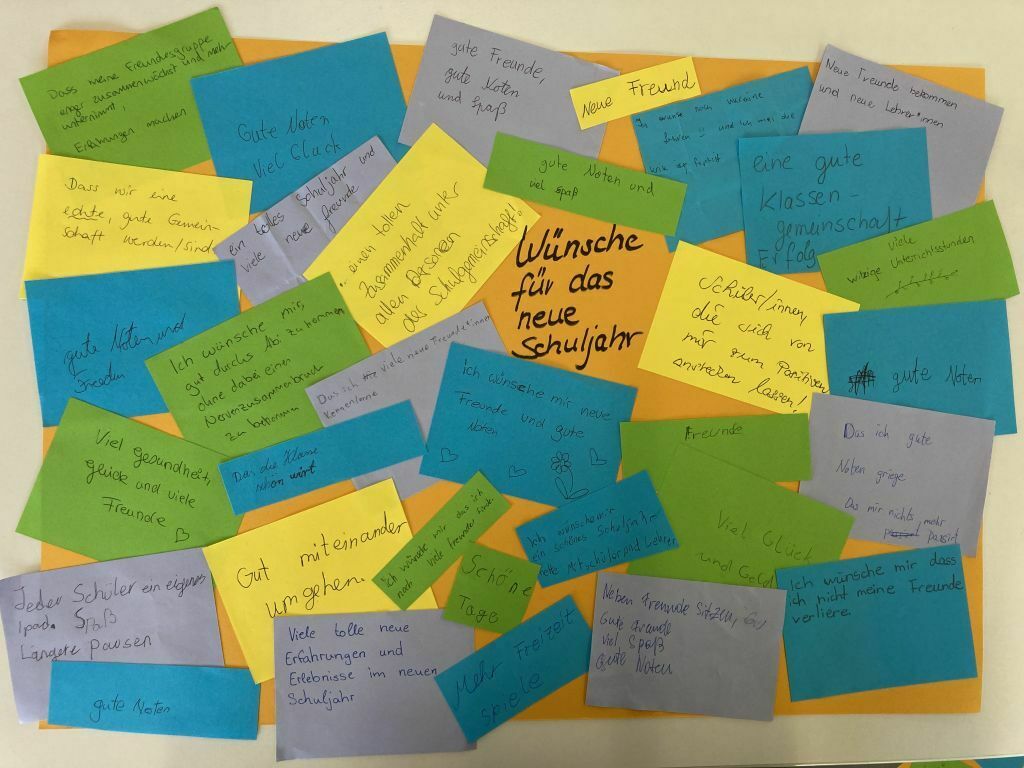 Dass meine Freundesgruppe
enger zusammenwächst und mehr
unternimmt,
Erfahrungen machen
Gute Noten
Viel Glück
gute Freunde,
gute Noten
und Spaß
Neue Freund
Neue Freunde bekommen
und neue Lehrer*innen
Dass wir eine
echte, gute Gemein-
schaft werden/sind
ein tolles Schuljahr und
viele neue freunde
... einen tollen
Zusammenhalt unter
allen Personen
der Schulgemeinschaft!
gute Noten und
viel spaß
eine gute
Klassen-
gemeinschaft
Erfolg
viele
witzige Unterrichtsstunden
Wünsche
für das
neue
Schuljahr
gute Noten und
Freunden
Ich wünsche mir,
gut durchs Abi zu kommen
ohne dabei einen
Nervenzusammenbruch
zu bekommen
Das ich viele neue Freunde*innen
kennenlerne
Ich wünsche mir neue
Freunde und gute
Noten
Schüler/innen,
die sich von
mir zum Positiven
anstecken lassen!
gute Noten
Viel gesundheit,
glück und viele
Freunde
Das die Klasse
schön wirt
Freunde
Viel Glück
und Geld
Das ich gute
Noten griege
Das mir nichts mehr
passirt
Gut miteinander
umgehen.
Ich wünsche mir das ich
noch viele freunde finde.
Ich wünsche mir
ein schönes Schuljahr
nette Mitschüler und Lehrer
Schöne
Tage
Jeder Schüler ein eigenes
Ipad. Spaß
Längere pausen
gute Noten
Viele tolle neue
Erfahrungen und
Erlebnisse im neuen
Schuljahr
Mehr Freizeit
spiele
Neben Freunde Sitzen,
Gute Freunde
viel Spaß
Gute Noten
Ich wünsche mir dass
ich nicht meine Freunde
verliere.